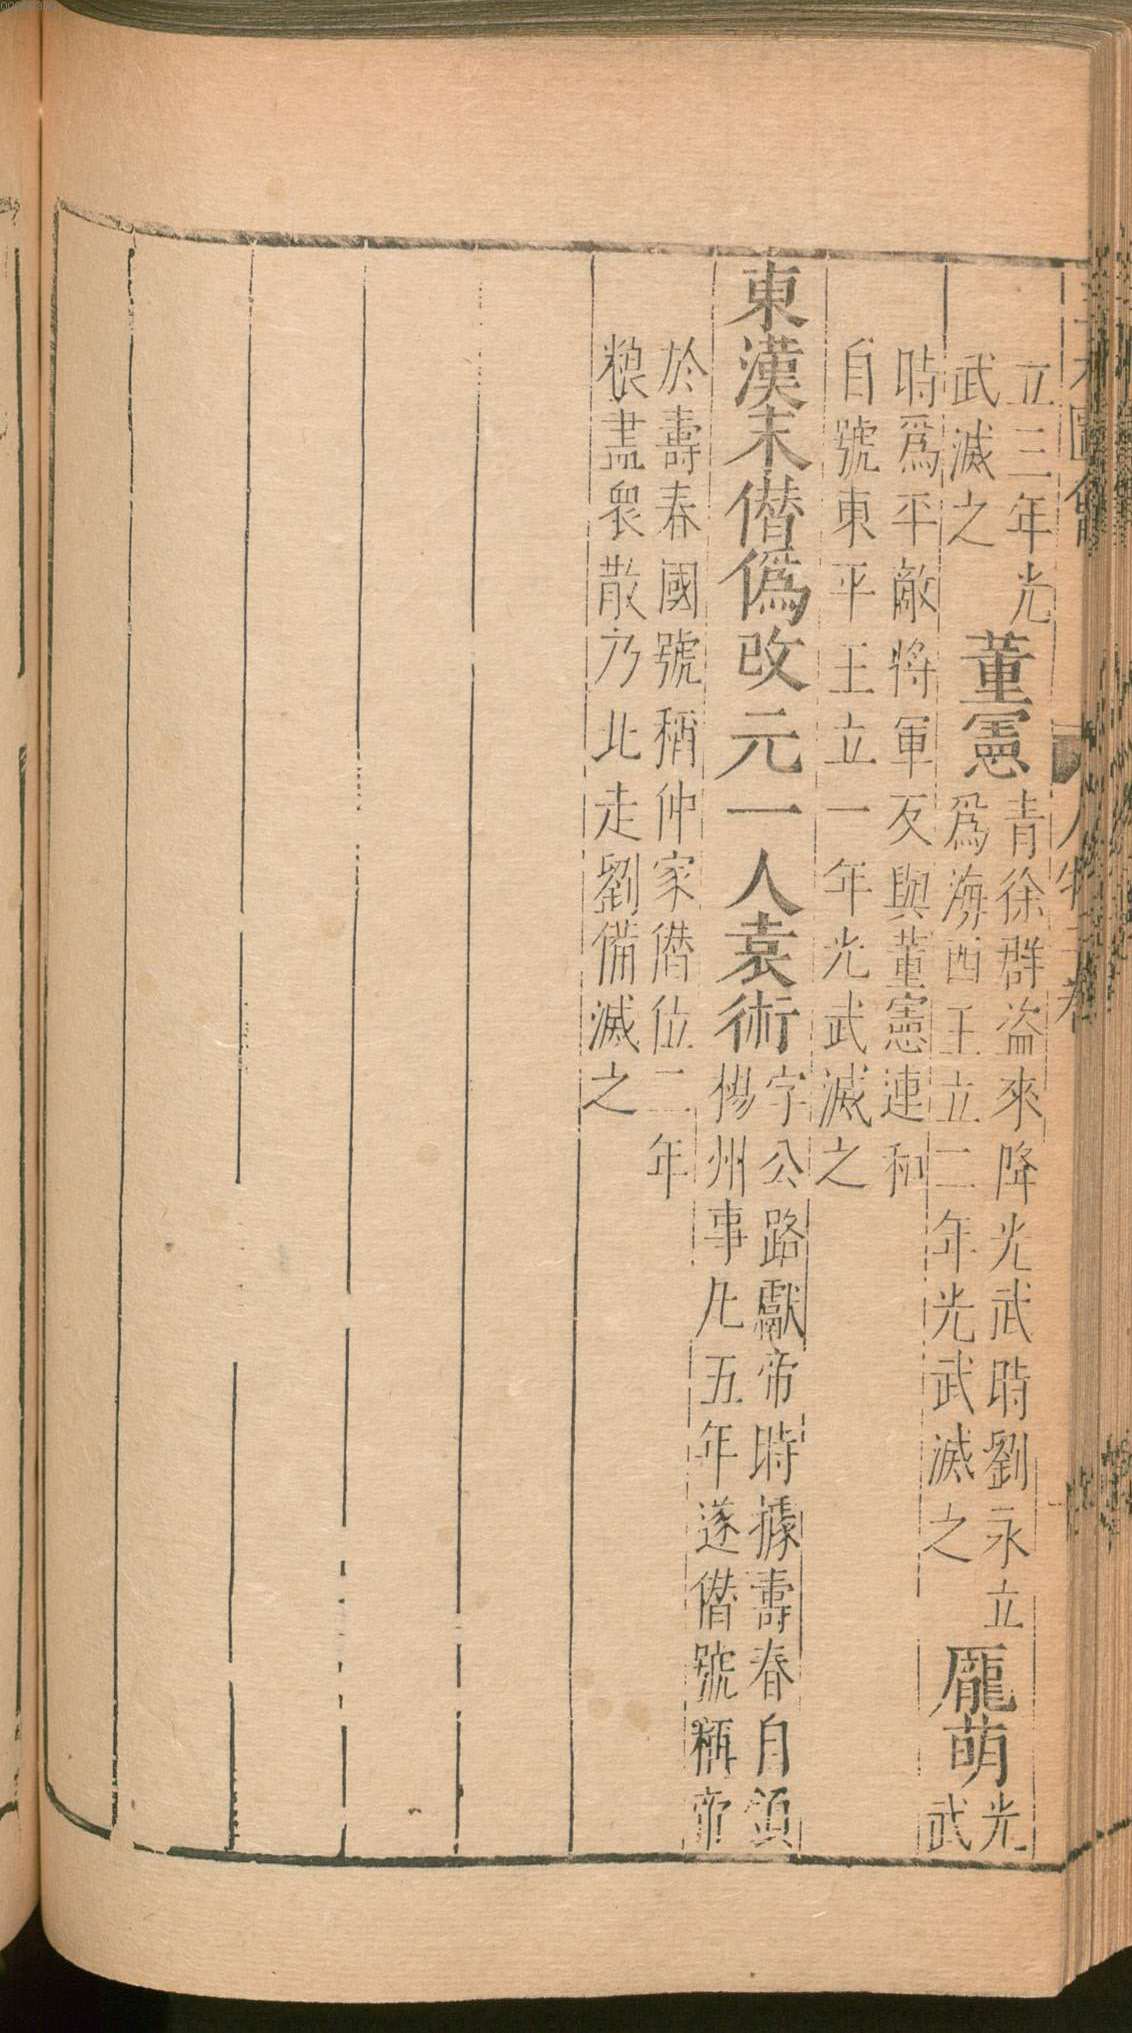 立三年光
武滅之
董憲
青徐群盜來降光武時劉永立
爲海西王立二年光武滅之
龐萌
光
武
時爲平敵將軍反與董憲連和
自號東平王立一年光武滅之
東漢末僭僞改元一人袁術
字公路獻帝時據壽春自領
楊州事凡五年遂僭號稱帝
於壽春國號稱仲家僭位二年
糧盡衆散乃北走劉備滅之